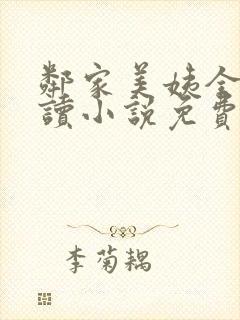 鄰家美姨全
讀小說免費
李菊耦